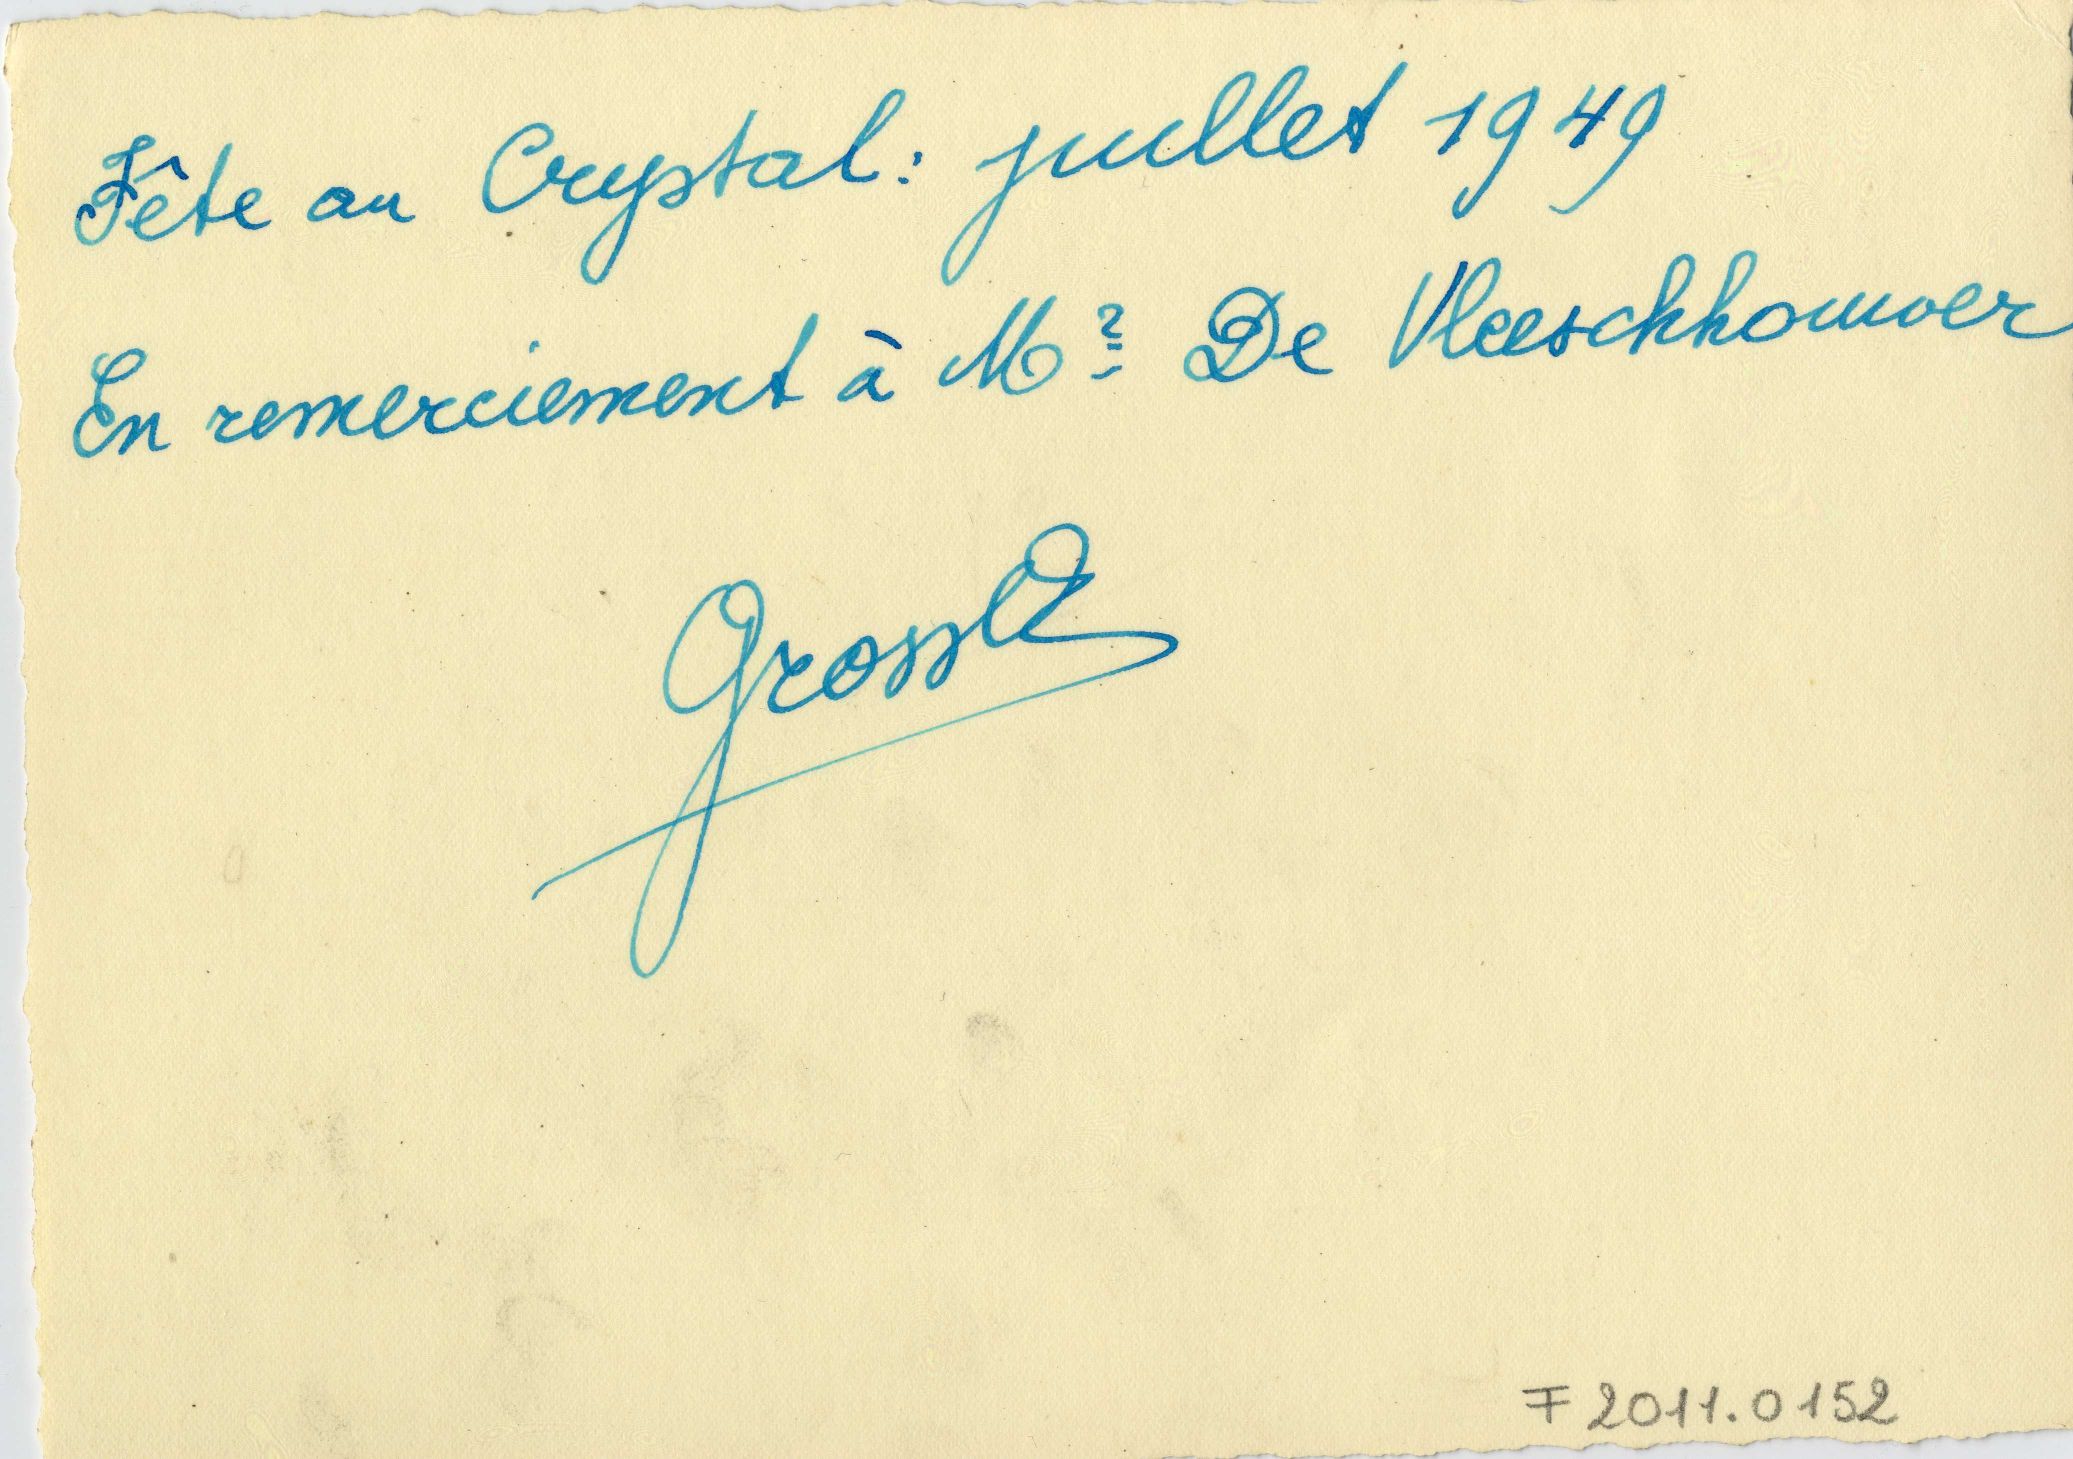 Fête au Crystal: juillet 1949
En remerciement à Mr De Vleeschhouwer
F 2011.0152